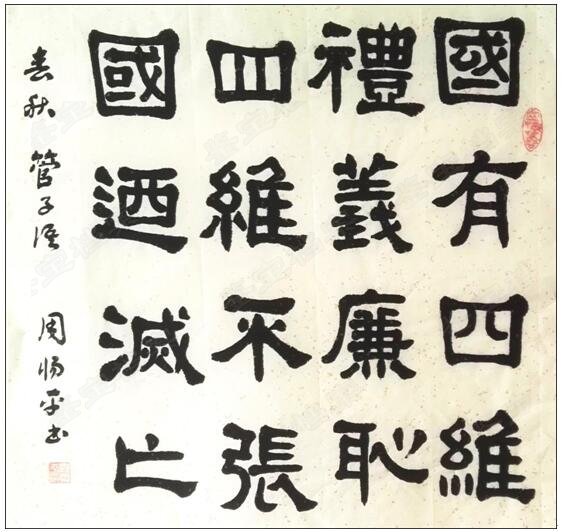 國有四維
禮義廉恥
四維不張
國迺滅亡
春秋 管子 周 平书